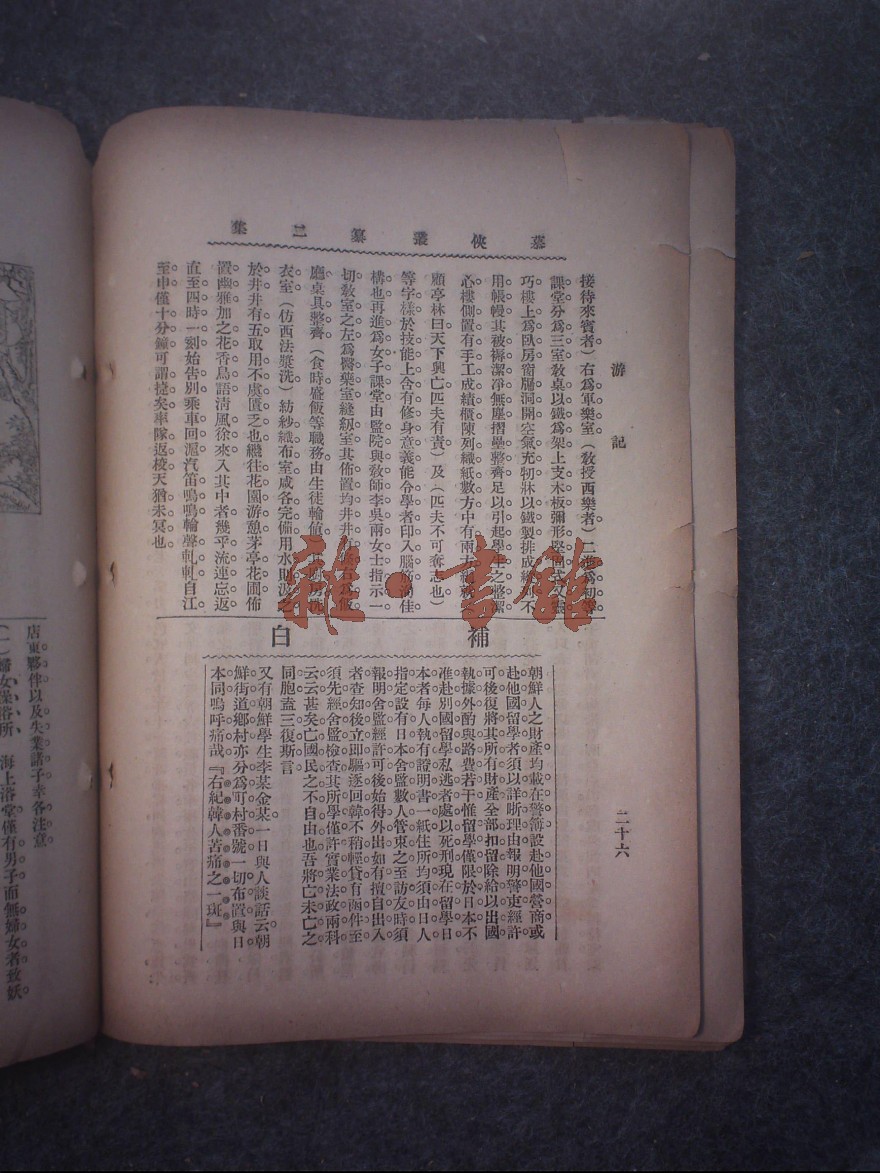 慕俠叢纂二集
游記
二十六
接待來賓者）右爲軍樂室（敎授西樂者）二進爲初等
課堂分爲三室敎桌以鐵爲架上支木板彌形堅固
巧樓上爲臥房窗牖洞開空氣充牣牀以鐵製排成
用帳幔其被褥潔淨無塵摺壘整齊足以引起學生之整潔
心樓側置有手工成績櫃陳列織紙數方中有兩
顧亭林曰天下興亡匹夫有責）及（匹夫不可奪志也）
等字樣於技能上含有修身意義能令學者印入腦筋洵佳
構也再進爲女子課堂由監院與敎師李吳兩女士指示一
切敎室之左爲醫藥室縫紉室其佈置均井井
廳桌具整齊（食時盛飯等職務由生徒輪値）
衣室（仿西法漿洗）紡紗織布室咸各完備用水則汲之
於井井有五取用不虞匱乏也繼往花園游憩茅亭花圃佈
置幽雅加之花香鳥語淸風徐來入其中者幾乎流連忘返
直至四時一刻始告別乘車回滬汽笛嗚嗚輪聲軋軋自江
至申僅十分鐘可謂捷矣率隊返校天猶未冥也
補白
朝鮮人之財產均載在警簿設赴他國營商或
赴他國留學者須以詳晰理由報明警吏經許
可後復將其所有財產全部扣留除給以出國
執據外酌與路費若干惟留學僅限於日本不
准赴別國留學私逃者處以死刑現在留學日
本者每人執有證明書一紙住所均須由日人
指定設有日本舍監數人管束之至訪友時須
報明舍監經許可後始得外出如有擅自出入
者查知後立即驅逐回韓不稍輕貸有函件至
須先經舍監檢查其所學僅許實業法政兩科
云云甚矣亡國民之不自由也吾將亡未亡之
同胞盍三復斯言
又有朝鮮學生李某金某一日與人談話云朝
鮮街道鄉村亦分爲町村番號一切布置與日
本同嗚呼痛哉『右紀韓人苦痛之一斑』
店東夥伴以及失業諸子幸各注意
（一）婦女澡浴所 海上浴堂僅有男子而無婦女者致妖
雜·書館